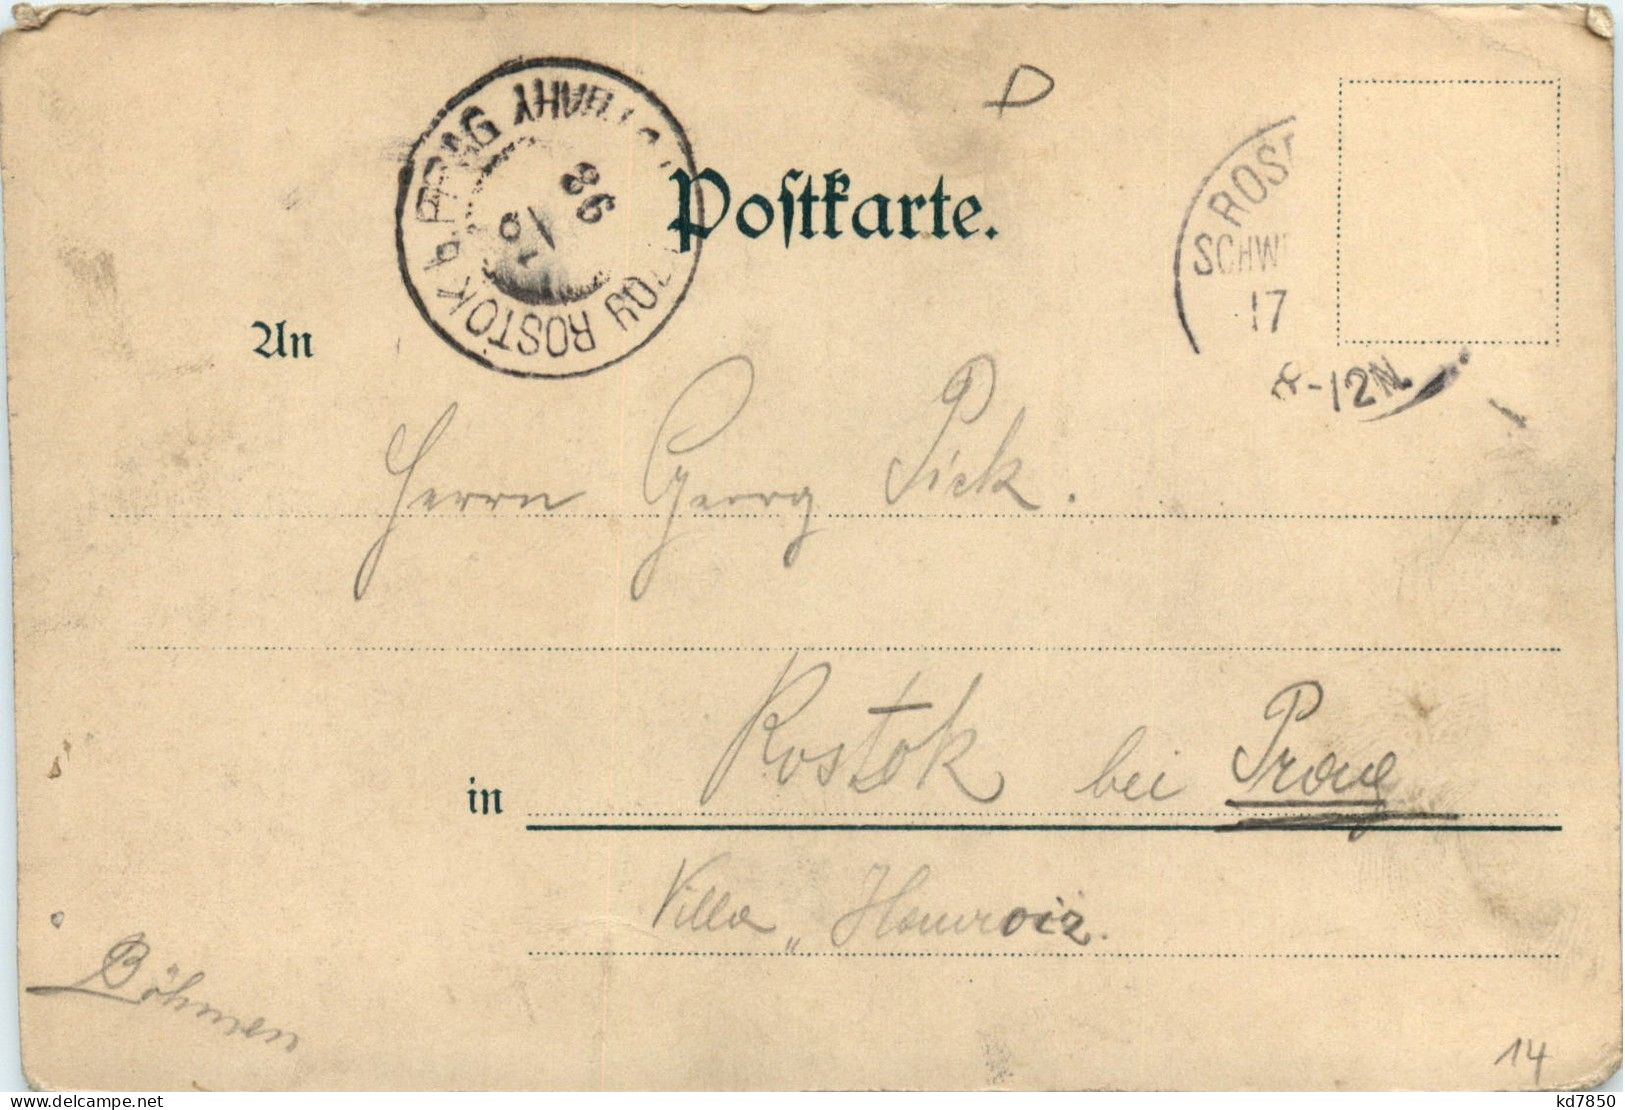 D
Postkarte.
ROSTOK b. PRAG
98
ROST
SCHW
17
8-12N
An
Herrn Georg Pick.
in Rostok bei Prag
Villa „
Böhmen
14
delcampe.net
kd7850